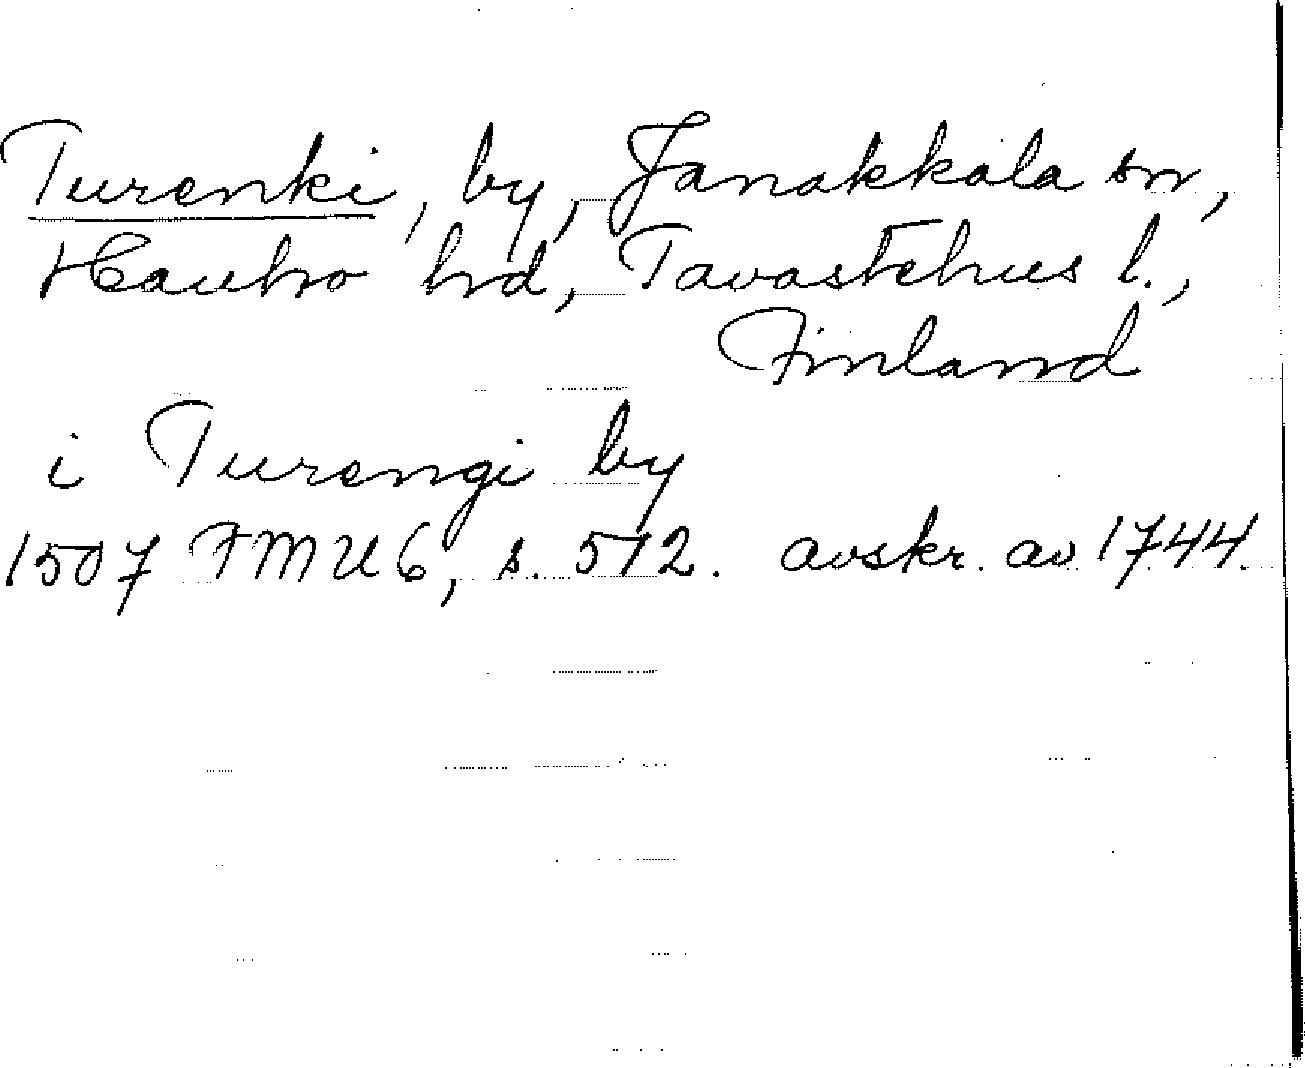 Turenki, by, Janakkala sn,
Hauho hd, Tavastehus l.,
Finland
i Turengi by
1507 FMU 6, s. 572. avskr. av 1744.